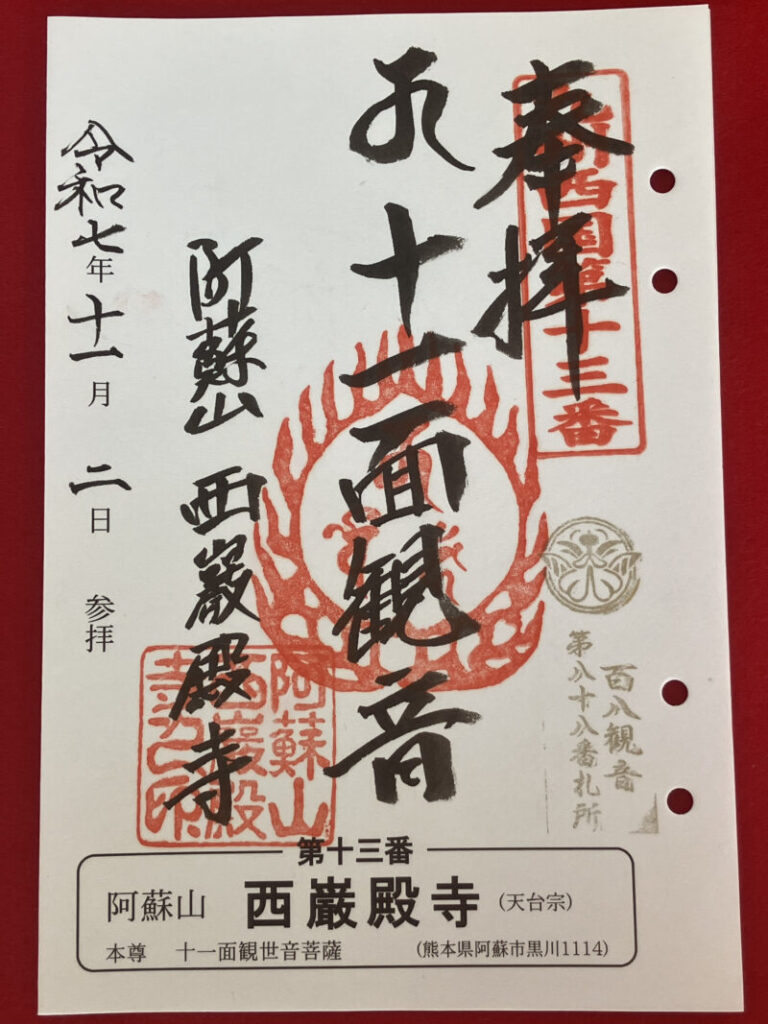 奉拝
新西国第十三番
百八観音
第八十八番札所
十一面観音
阿蘇山 西巌殿寺
阿蘇山
西巌殿
寺之印
令和七年十一月二日 参拝
第十三番
阿蘇山 西巌殿寺 (天台宗)
本尊 十一面観世音菩薩 (熊本県阿蘇市黒川1114)